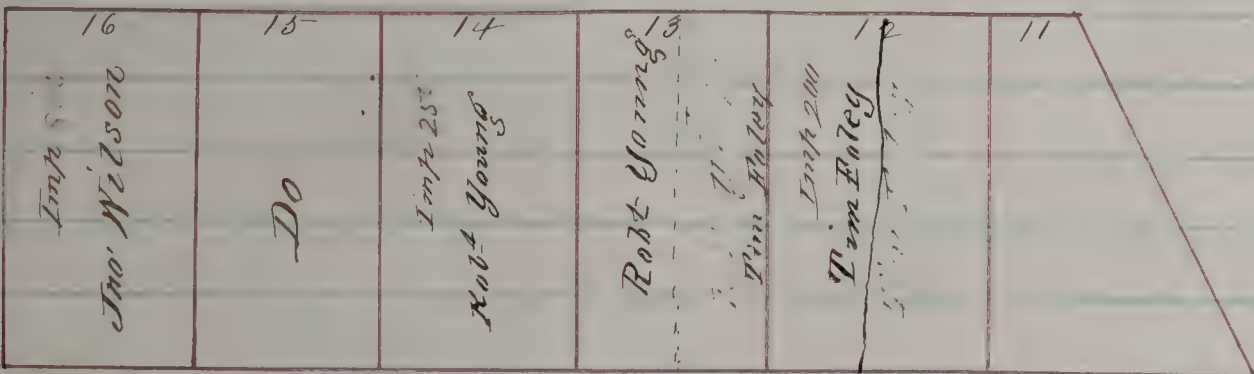 16
Imp
Jno' Wilson
15
Do
14
Imp 25
Robt Young
13
Robt Young
Tim Foley
12
Imp 200
Tim Foley
11